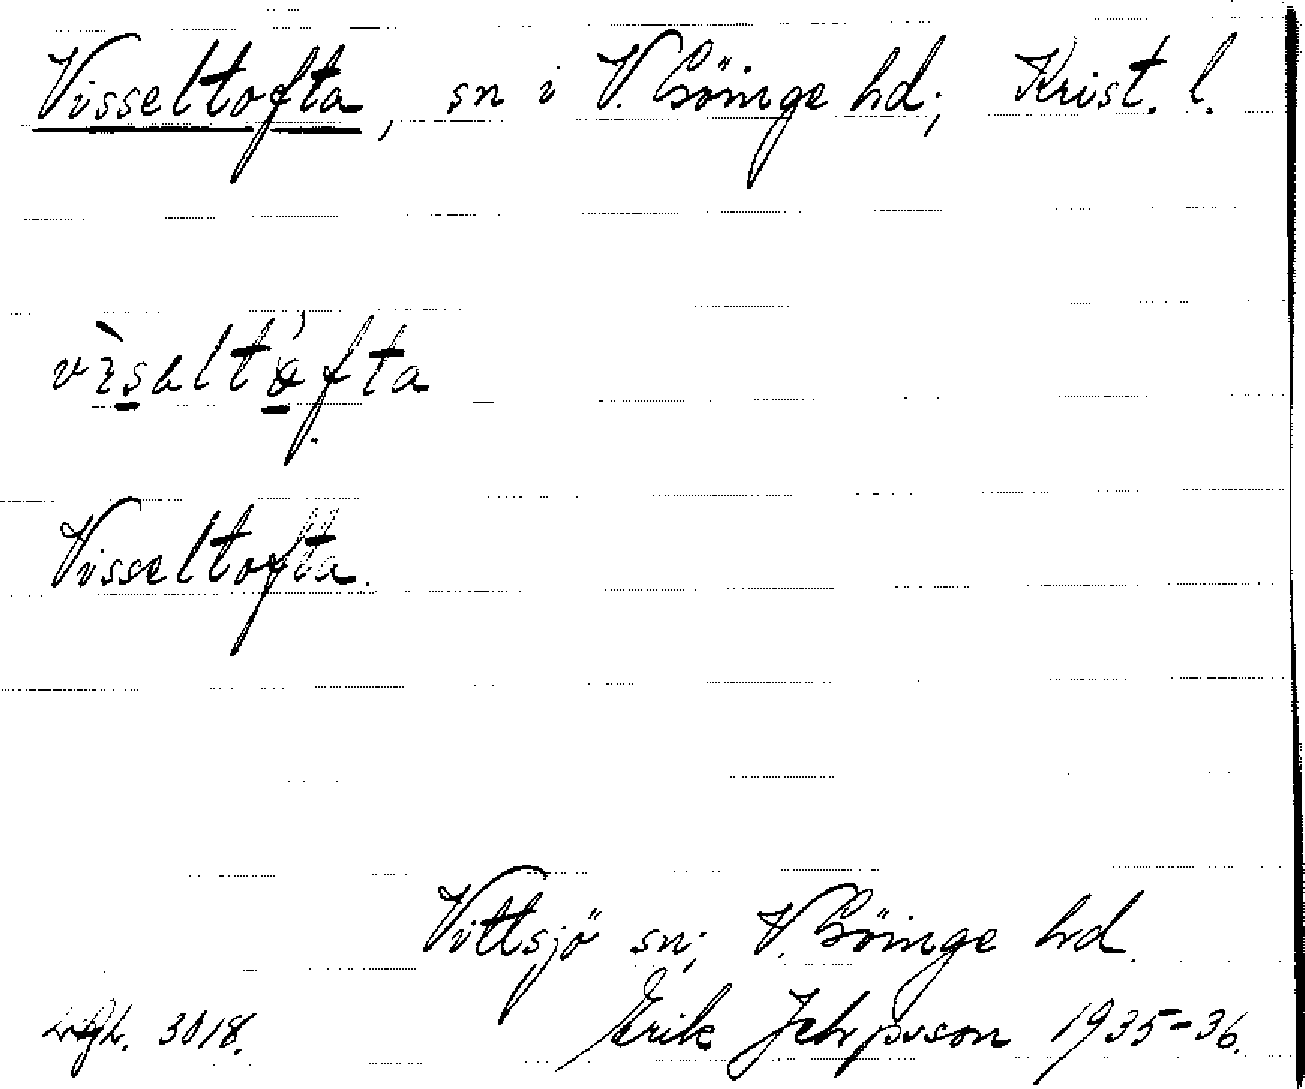 Visseltofta, sn i V. Göinge hd; Krist. l.
vìsaltòfta
Visseltofta.
Vittsjö sn; V. Göinge hd.
Erik Jehpsson 1935-36.
3018.